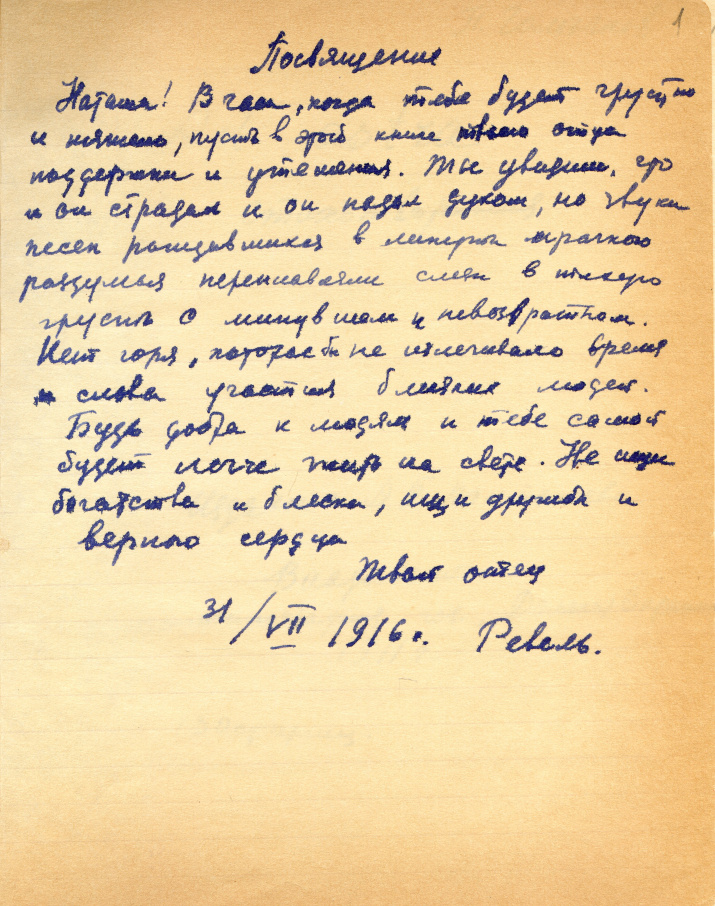 1
Посвящение
Наташа! В часы, когда тебе будет грустно
и тяжело, пусть в этой книге твоего отца
поддержки и утешения. Ты увидишь, что
и он страдал и он падал духом, но звуки
песен рождавшихся в мрачного
раздумья переплавляли в тихую
грусть о минувшем и невозвратном.
Нет горя, которое бы не излечивало время
и слова участия близких людей.
Будь добра к людям и тебе самой
будет легче жить на свете. Не ищи
богатства и блеска, ищи дружбы и
верного сердца
Твой отец
31/VII 1916 г. Ревель.